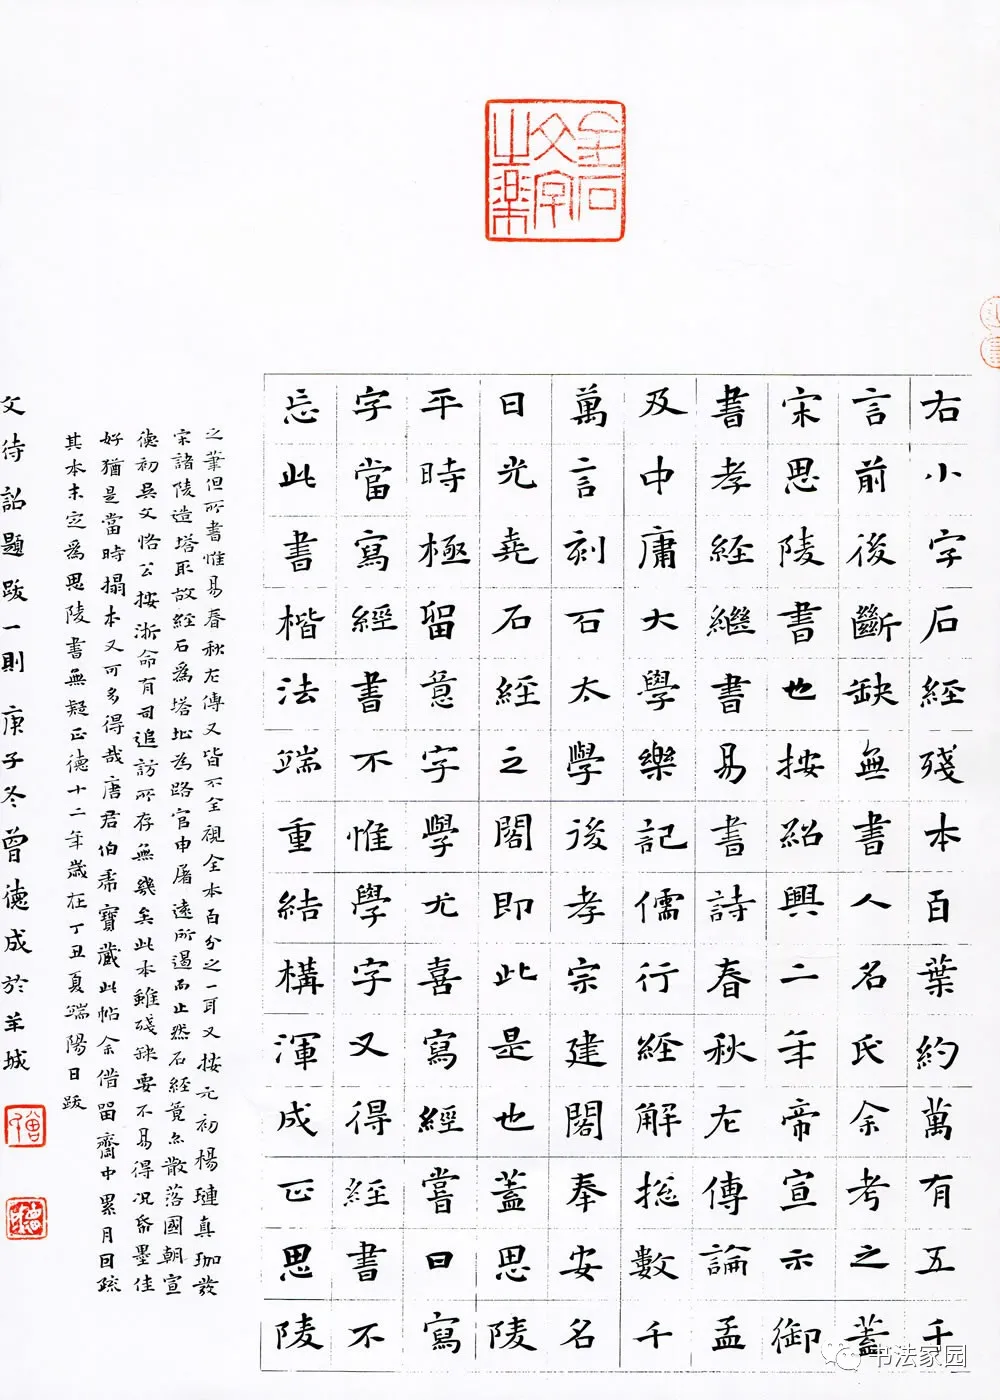 金石
文字
之樂
右小字石經殘本百葉約萬有五千
言前後斷缺無書人名氏余考之蓋
宋思陵書也按紹興二年帝宣示御
書孝經繼書易書詩春秋左傳論孟
及中庸大學樂記儒行經解捴數千
萬言刻石太學後孝宗建閣奉安名
日光堯石經之閣即此是也蓋思陵
平時極留意字學尤喜寫經嘗曰寫
字當寫經書不惟學字又得經書不
忘此書楷法端重結構渾成正思陵
之筆但所書惟易春秋左傳又皆不全視全本百分之一耳又按元初楊璉真珈發
宋諸陵造塔取故經石為塔址為路官申屠遠所遏而止然石經竟亦散落國朝宣
德初吳文恪公按浙命有司追訪所存無幾矣此本雖殘缺要不易得况帋墨佳
好猶是當時搨本又可多得哉唐君伯𠂹寶藏此帖余借留齋中累月因疏
其本末定為思陵書無疑正德十二年歲在丁丑夏端陽日跋
文待詔題跋一則 庚子冬曾德成於羊城
书法家园